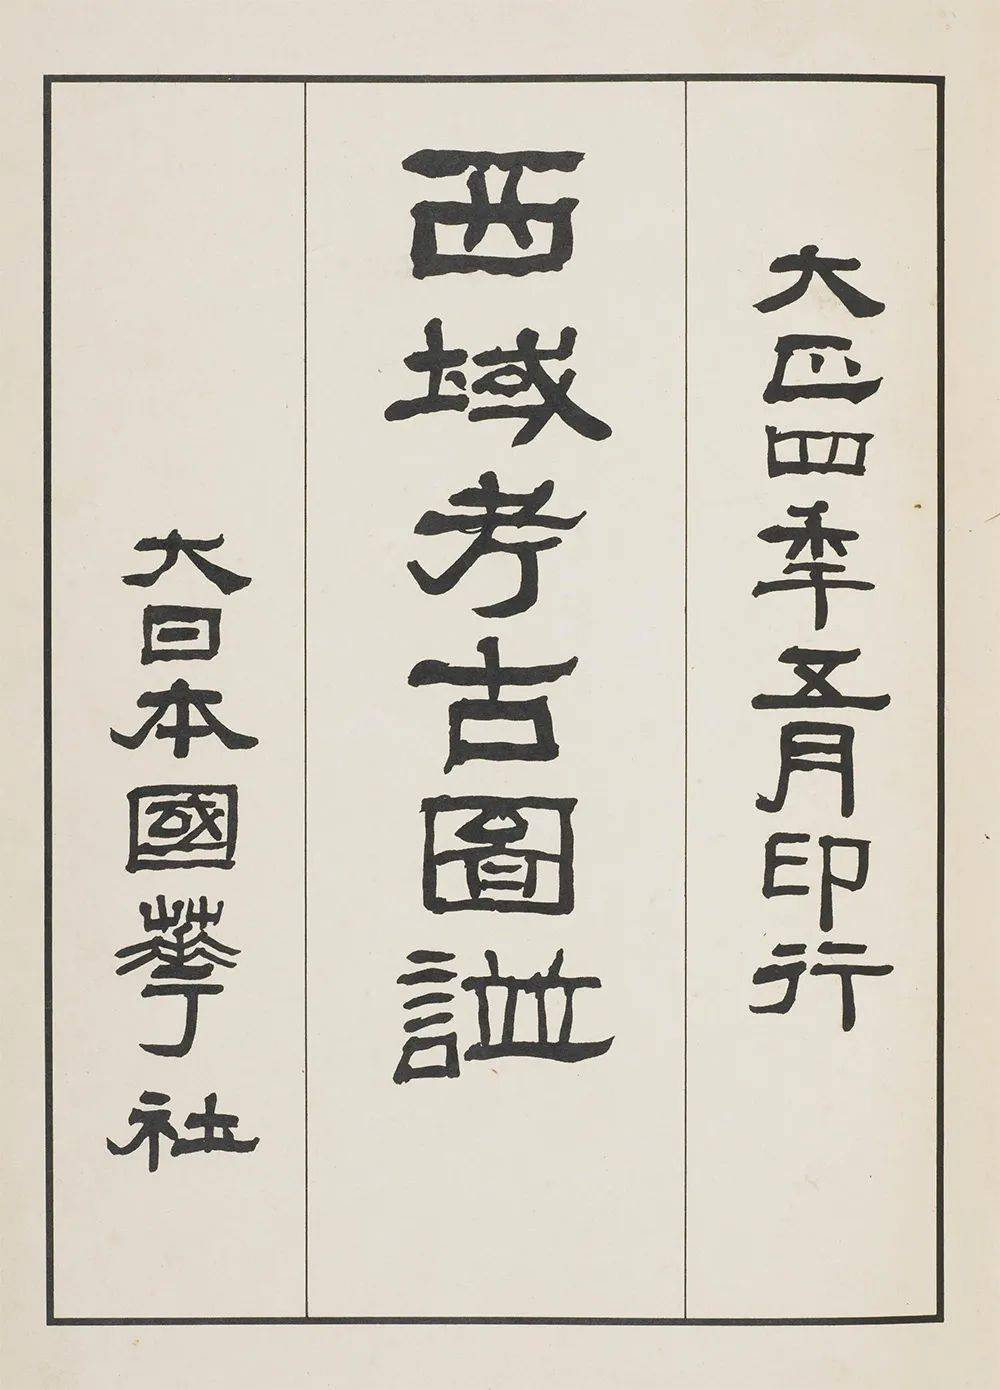 大正四季五月印行
西域考古圖譜
大日本國華社